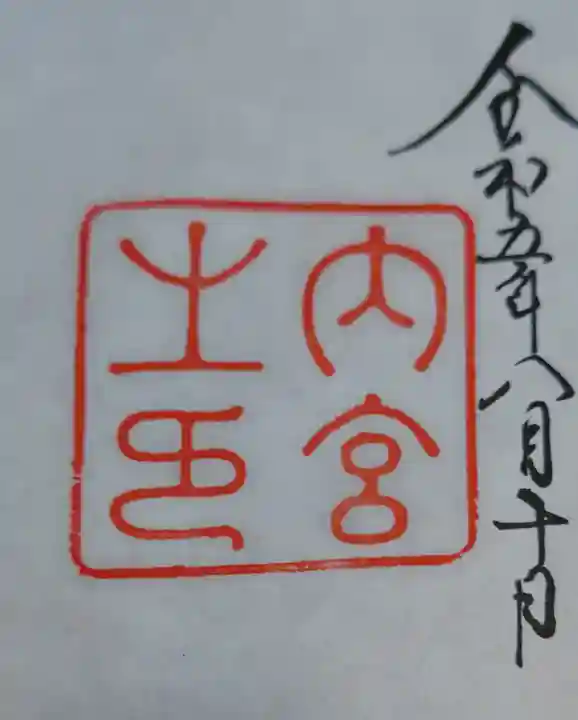 令和五年八月十日
内宮
之印